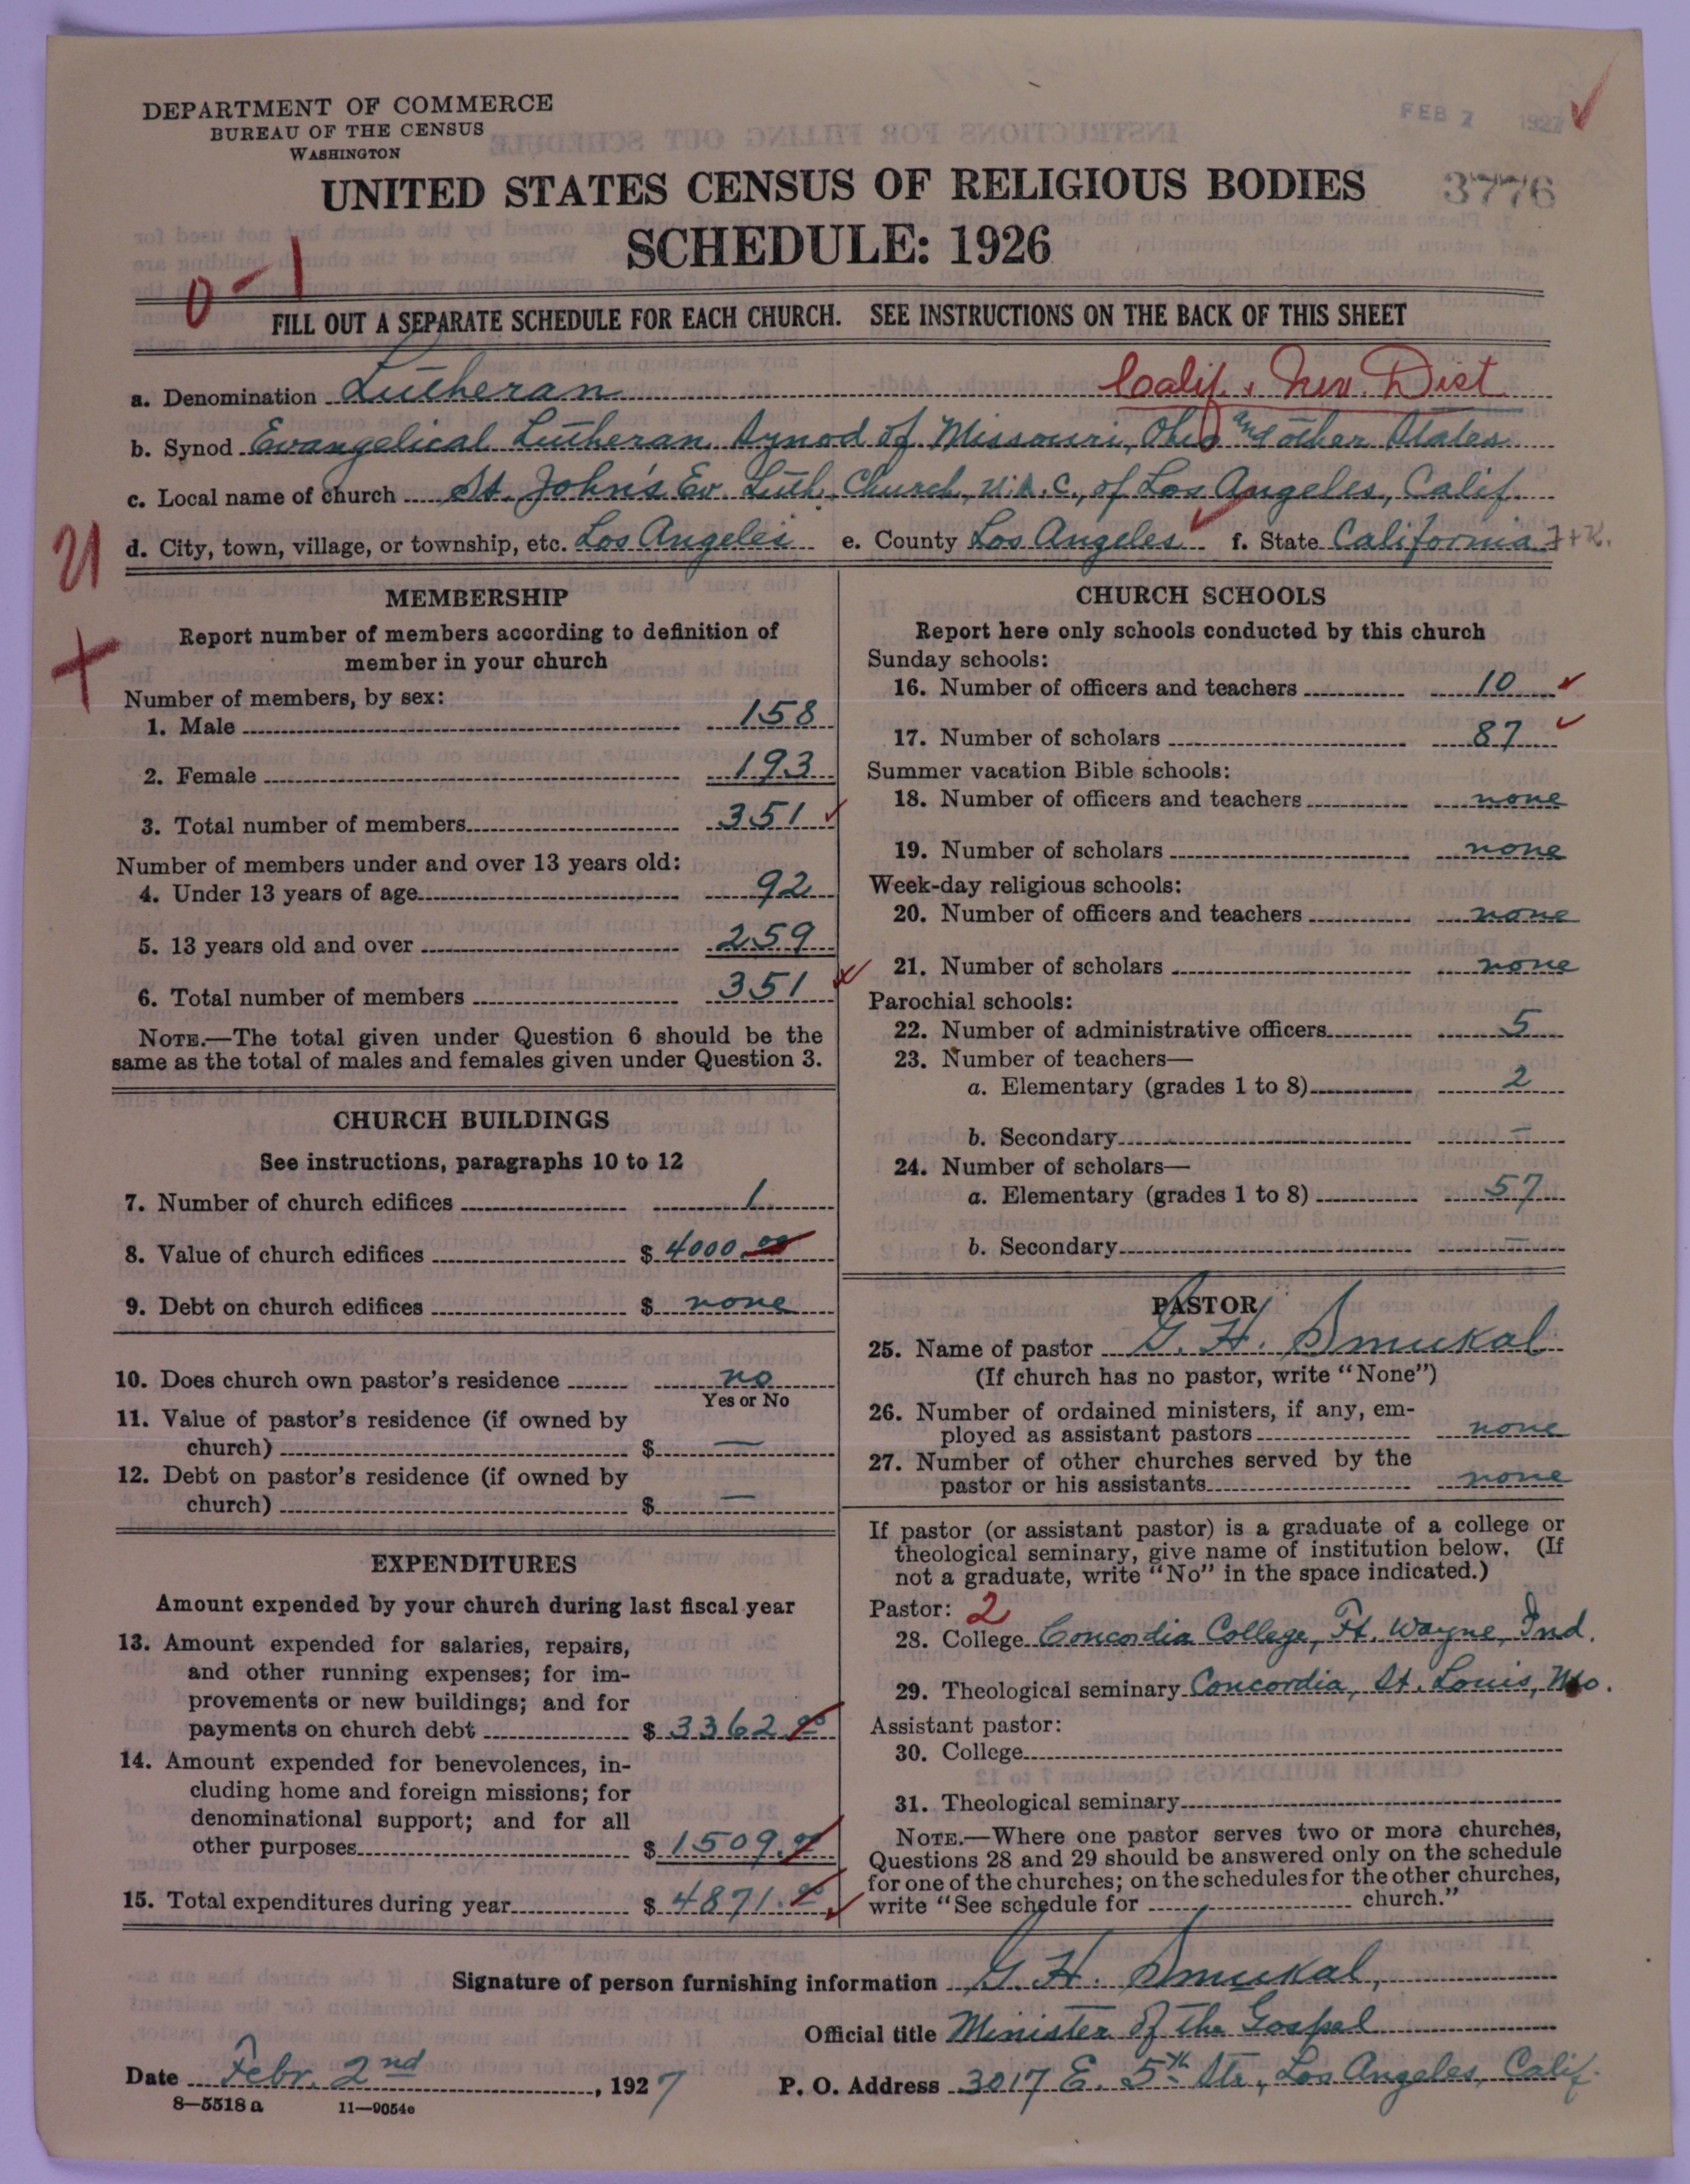 DEPARTMENT OF COMMERCE
BUREAU OF THE CENSUS
WASHINGTON
FEB 7 1927
UNITED STATES CENSUS OF RELIGIOUS BODIES
3776
SCHEDULE: 1926
0-1
FILL OUT A SEPARATE SCHEDULE FOR EACH CHURCH. SEE INSTRUCTIONS ON THE BACK OF THIS SHEET
a. Denomination Lutheran Calif. & Nev. Dist
b. Synod Evangelical Lutheran Synod of Missouri, Ohio and other States
c. Local name of church St. John's Ev. Luth. Church, U.A.C., of Los Angeles, Calif.
d. City, town, village, or township, etc. Los Angeles e. County Los Angeles f. State California
MEMBERSHIP
Report number of members according to definition of
member in your church
Number of members, by sex:
1. Male 158
2. Female 193
3. Total number of members 351
Number of members under and over 13 years old:
4. Under 13 years of age 92
5. 13 years old and over 259
6. Total number of members 351
NOTE.—The total given under Question 6 should be the
same as the total of males and females given under Question 3.
CHURCH BUILDINGS
See instructions, paragraphs 10 to 12
7. Number of church edifices 1
8. Value of church edifices $ 4000.00
9. Debt on church edifices $ none
10. Does church own pastor's residence no
Yes or No
11. Value of pastor's residence (if owned by
church) $ —
12. Debt on pastor's residence (if owned by
church) $ —
EXPENDITURES
Amount expended by your church during last fiscal year
13. Amount expended for salaries, repairs,
and other running expenses; for im-
provements or new buildings; and for
payments on church debt $ 3362.00
14. Amount expended for benevolences, in-
cluding home and foreign missions; for
denominational support; and for all
other purposes $ 1509.00
15. Total expenditures during year $ 4871.00
CHURCH SCHOOLS
Report here only schools conducted by this church
Sunday schools:
16. Number of officers and teachers 10
17. Number of scholars 87
Summer vacation Bible schools:
18. Number of officers and teachers none
19. Number of scholars none
Week-day religious schools:
20. Number of officers and teachers none
21. Number of scholars none
Parochial schools:
22. Number of administrative officers 5
23. Number of teachers—
a. Elementary (grades 1 to 8) 2
b. Secondary —
24. Number of scholars—
a. Elementary (grades 1 to 8) 57
b. Secondary —
PASTOR
25. Name of pastor G. H. Smukal
(If church has no pastor, write "None")
26. Number of ordained ministers, if any, em-
ployed as assistant pastors none
27. Number of other churches served by the
pastor or his assistants none
If pastor (or assistant pastor) is a graduate of a college or
theological seminary, give name of institution below. (If
not a graduate, write "No" in the space indicated.)
Pastor: 2
28. College Concordia College, Ft. Wayne, Ind.
29. Theological seminary Concordia, St. Louis, Mo.
Assistant pastor:
30. College
31. Theological seminary
NOTE.—Where one pastor serves two or more churches,
Questions 28 and 29 should be answered only on the schedule
for one of the churches; on the schedules for the other churches,
write "See schedule for church."
Signature of person furnishing information G. H. Smukal,
Official title Minister of the Gospel
Date Febr. 2nd, 1927 P. O. Address 3017 E. 5th Str., Los Angeles, Calif.
8—5518 a 11—9054e